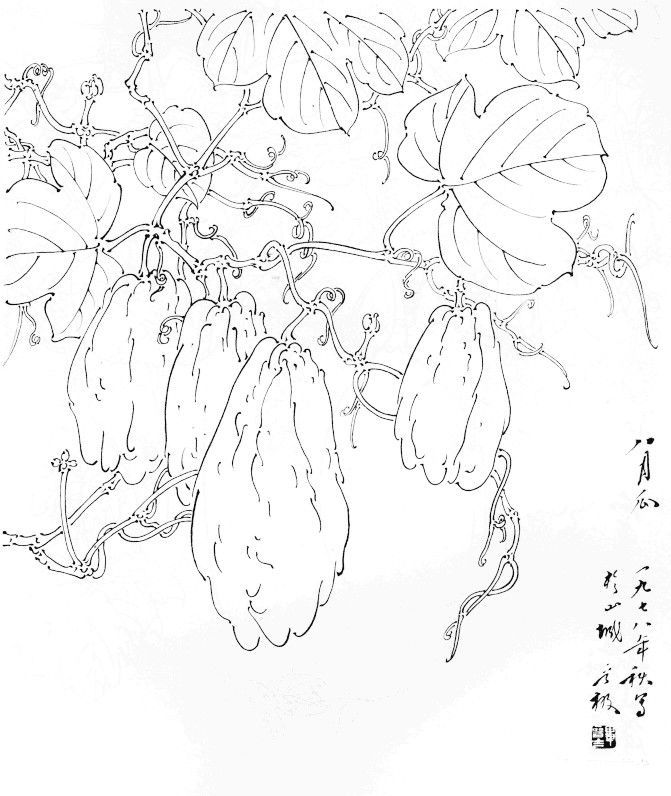 八月瓜
一九七八年秋写
於山城